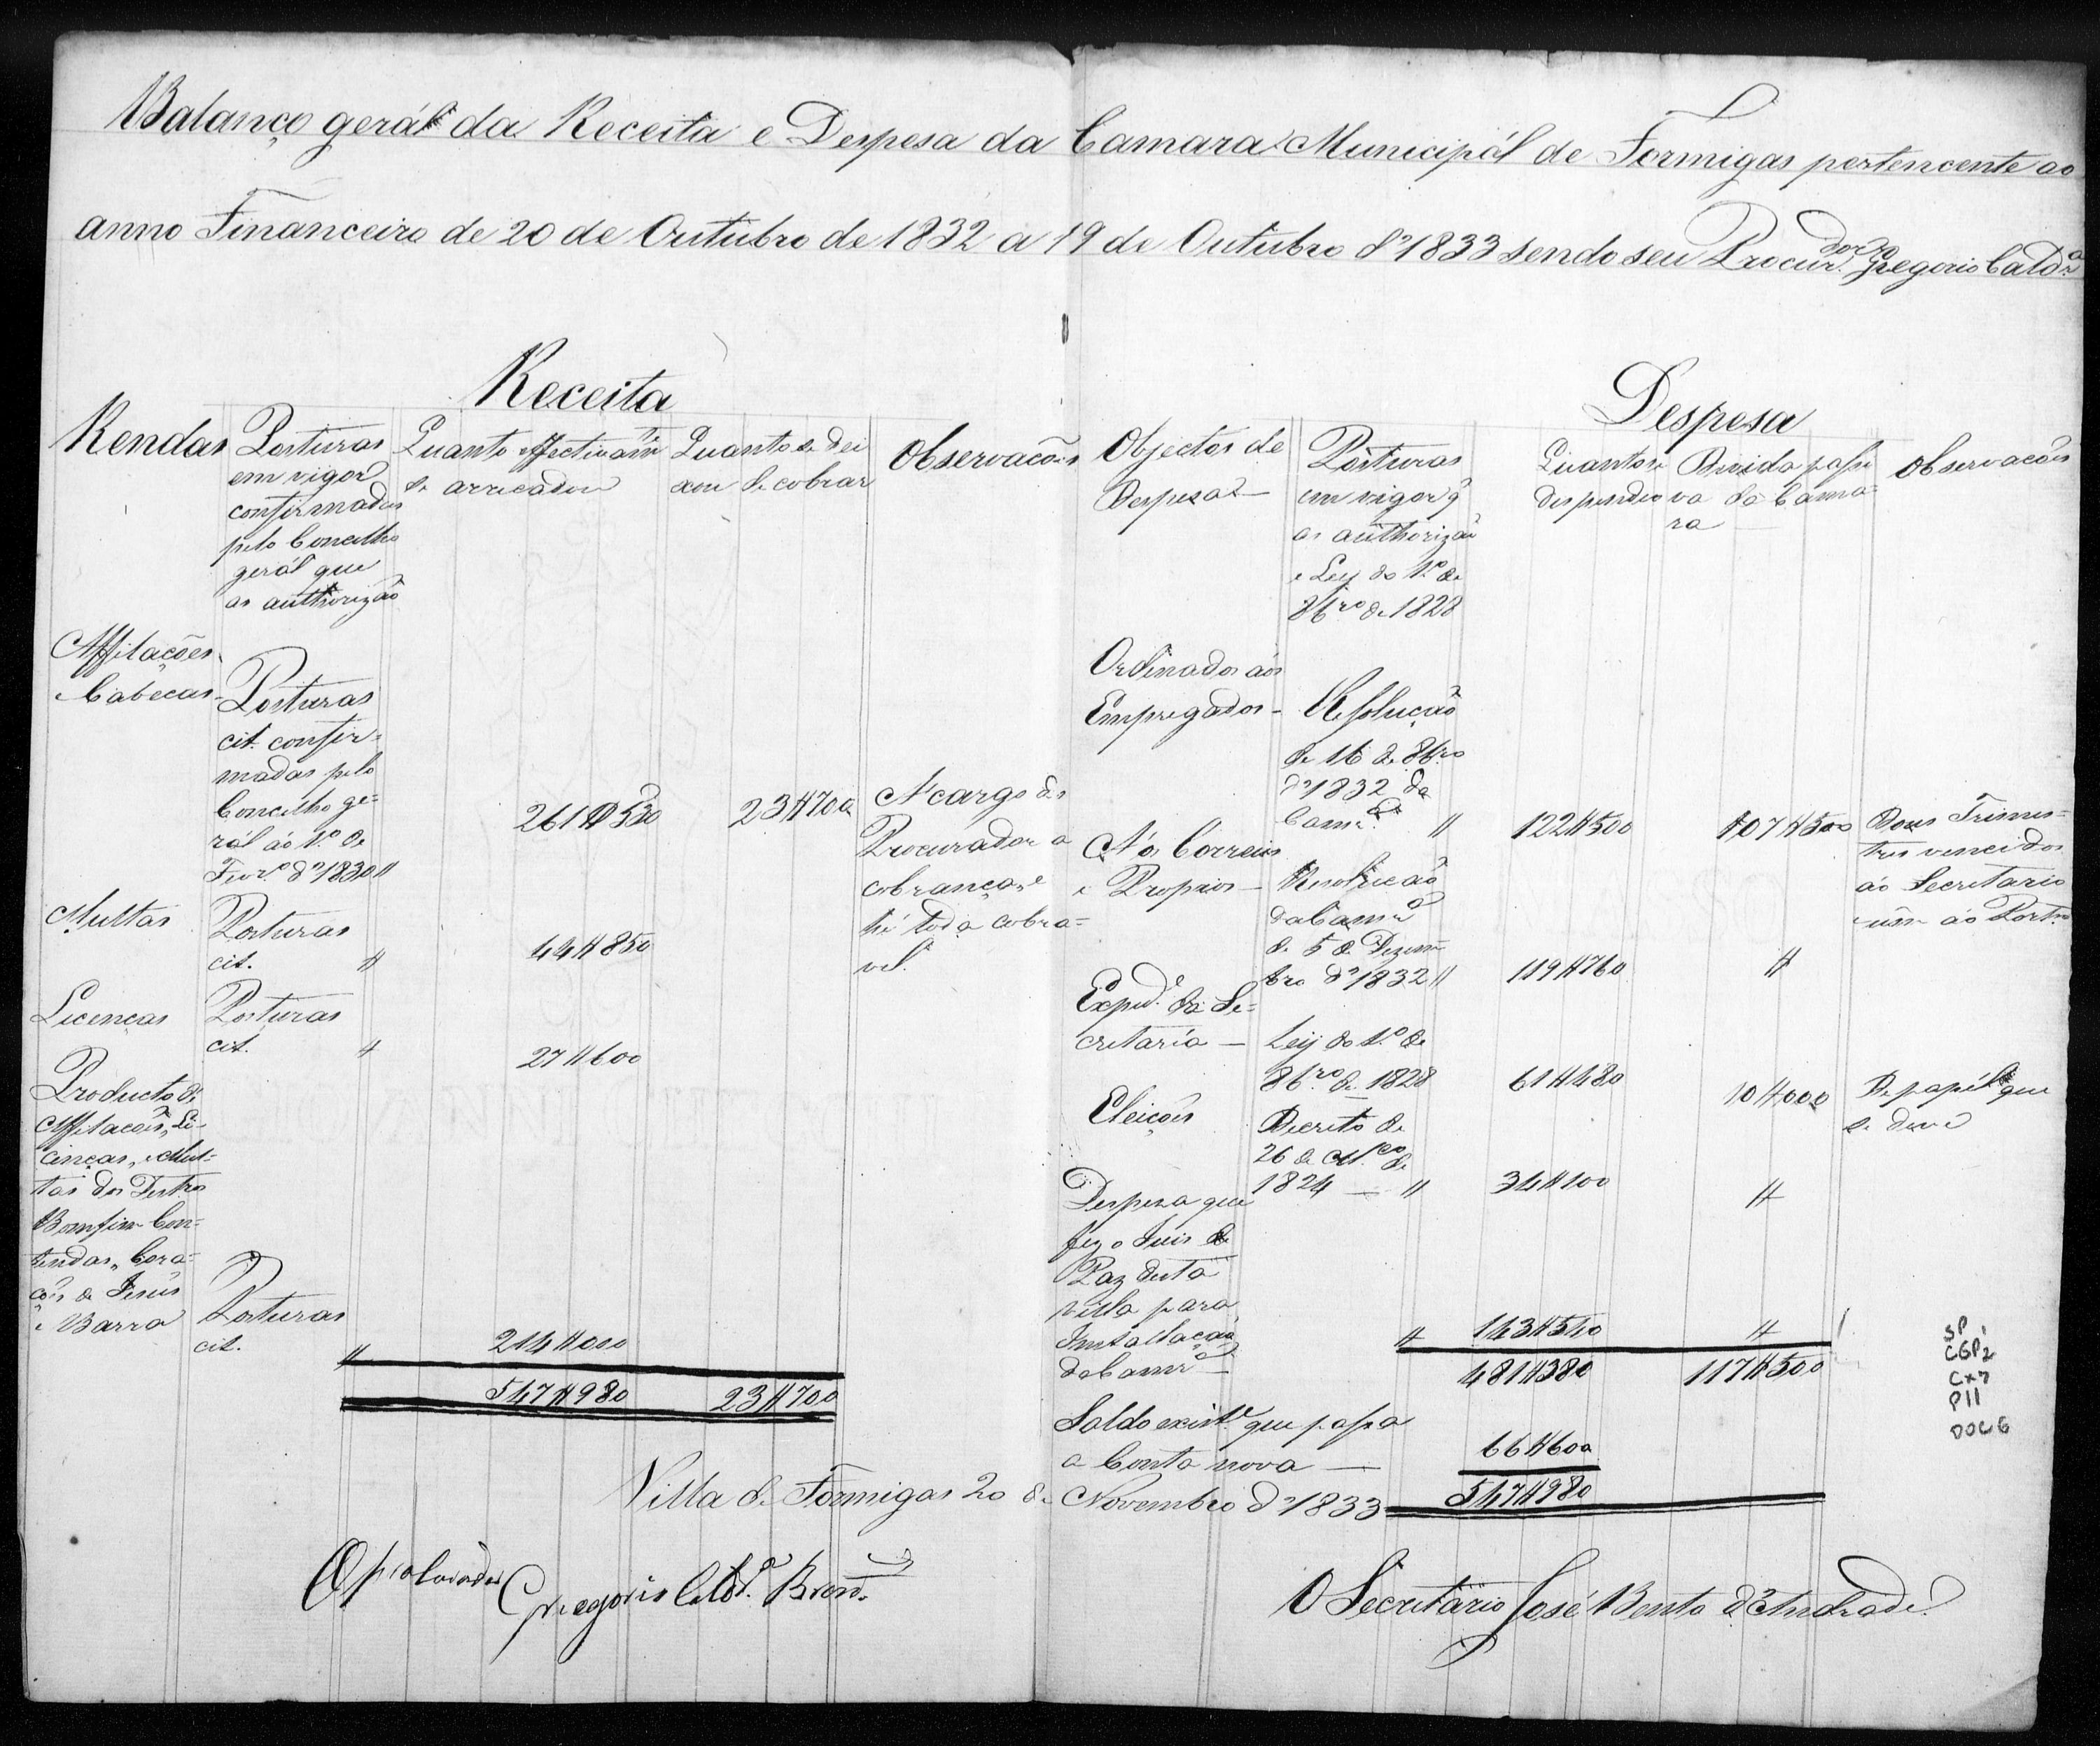 Balanço gerál da Receita e Despesa da Camara Municipál de Formigas pertencente ao
anno Financeiro de 20 de Outubro de 1832 a 19 de Outubro d'1833 sendo seu Procur.dor Gregorio Cald.ra
Receita
Rendas
Posturas
em vigor
confirmadas
pelo Concelho
gerál que
as authorizão
Quanto effectivam.te
se arrecadou
Quanto se dei
xou de cobrar
Observacões
Affilações
e Cabecas
Posturas
cit. confir=
madas pelo
Concelho ge=
rál áo 1.º de
Fevr.º d'1830 "
261#530
23#700
A' cargo do
Procurador a
cobrança, e
hé toda cobra=
vel.
Multas
Posturas
cit. "
44#850
Licenças
Posturas
cit. "
27#600
Producto de
Affilacoẽs, Li-
cenças, e Mul=
tas dos
Bomfim Con=
tendas, Cora=
cões de Jesus
e Barra
Posturas
cit. "
214#000
547#980
23#700
Despesa
Objectos de
Despesas —
Posturas
em vigor q̃
as authorizão
e Ley do 1.º de
8br.º de 1828
Quanto se
despendeo
Divida passi
va da Cama=
ra
Observacões
Ordinados aós
Empregados —
Resolução
de 16 de 8br.º
d'1832 da
Camr.ª "
122#500
107#500
Dous Trimes=
tres vencidos
áo Secretario
e um áo Portr.º
A'os Correios
e Proprios —
Resolucão
da Camr.ª
de 5 de Dezem=
bro d'1832 "
119#760
"
Exped.e da Se=
cretaria —
Ley do 1.º de
8br.º de 1828
61#480
10#000
De papél que
se deve
Eleições
Decreto de
26 de M.ço de
1824 — "
34#100
"
Despeza que
fez o Juis de
Paz desta
villa para
Installação
da Camr.ª —
" 143#540
"
481#380
117#500
Saldo exist.e que passa
a Conta nova —
66#600
547#980
Villa de Formigas 20 de Novembro d'1833
O Procurador Gregorio Cald.ª Brant.
O Secretario José Bento d'Andrade
SP 1
CGP2
Cx7
P11
DOC6